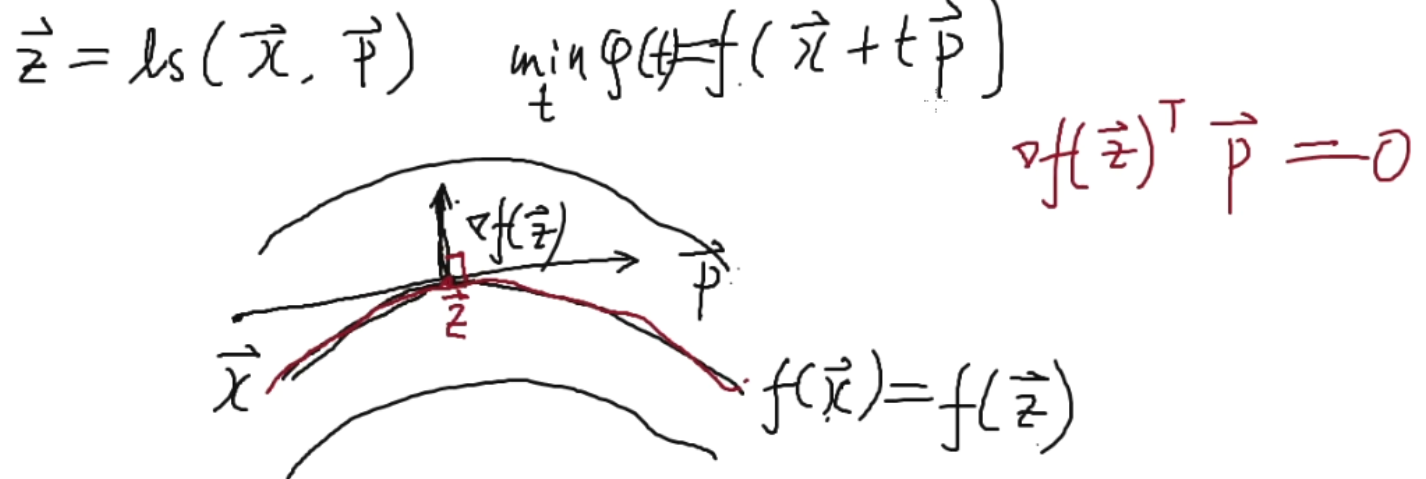 $\vec{z} = ls(\vec{x}, \vec{p})$ $\min_t \varphi(t) = f(\vec{x} + t\vec{p})$
$\nabla f(\vec{z})^T \vec{p} = 0$
$\nabla f(\vec{z})$
$\vec{p}$
$\vec{z}$
$\vec{x}$
$f(\vec{x}) = f(\vec{z})$